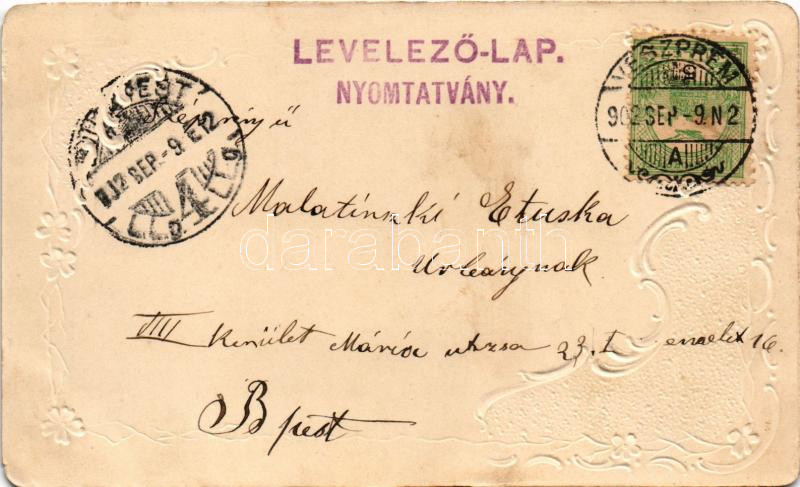 LEVELEZŐ-LAP.
NYOMTATVÁNY.
VESZPRÉM
902 SEP -9. N 2
A
SEP. -9 E 12
4
Malatinszki Etuska
Urleánynak
VIII Kerület Mária utcza 23. I emelet 16.
Bpest
darabanth